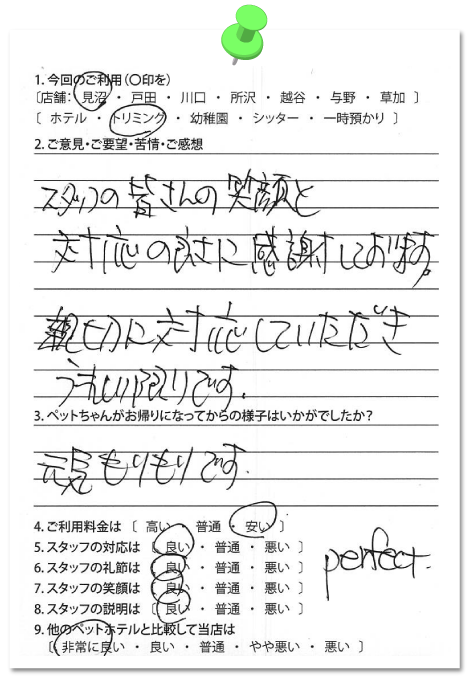 1. 今回のご利用(〇印を)
〔店舗： 見沼 ・ 戸田 ・ 川口 ・ 所沢 ・ 越谷 ・ 与野 ・ 草加 〕
〔 ホテル ・ トリミング ・ 幼稚園 ・ シッター ・ 一時預かり 〕
2. ご意見・ご要望・苦情・ご感想
スタッフの皆さんの笑顔と
対応の良さに感謝しております。
親切に対応していただき
うれしい限りです。
3. ペットちゃんがお帰りになってからの様子はいかがでしたか？
元気もりもりです。
4. ご利用料金は 〔 高い ・ 普通 ・ 安い 〕
5. スタッフの対応は 〔 良い ・ 普通 ・ 悪い 〕
6. スタッフの礼節は 〔 良い ・ 普通 ・ 悪い 〕
7. スタッフの笑顔は 〔 良い ・ 普通 ・ 悪い 〕
8. スタッフの説明は 〔 良い ・ 普通 ・ 悪い 〕
perfect.
9. 他のペットホテルと比較して当店は
〔 非常に良い ・ 良い ・ 普通 ・ やや悪い ・ 悪い 〕